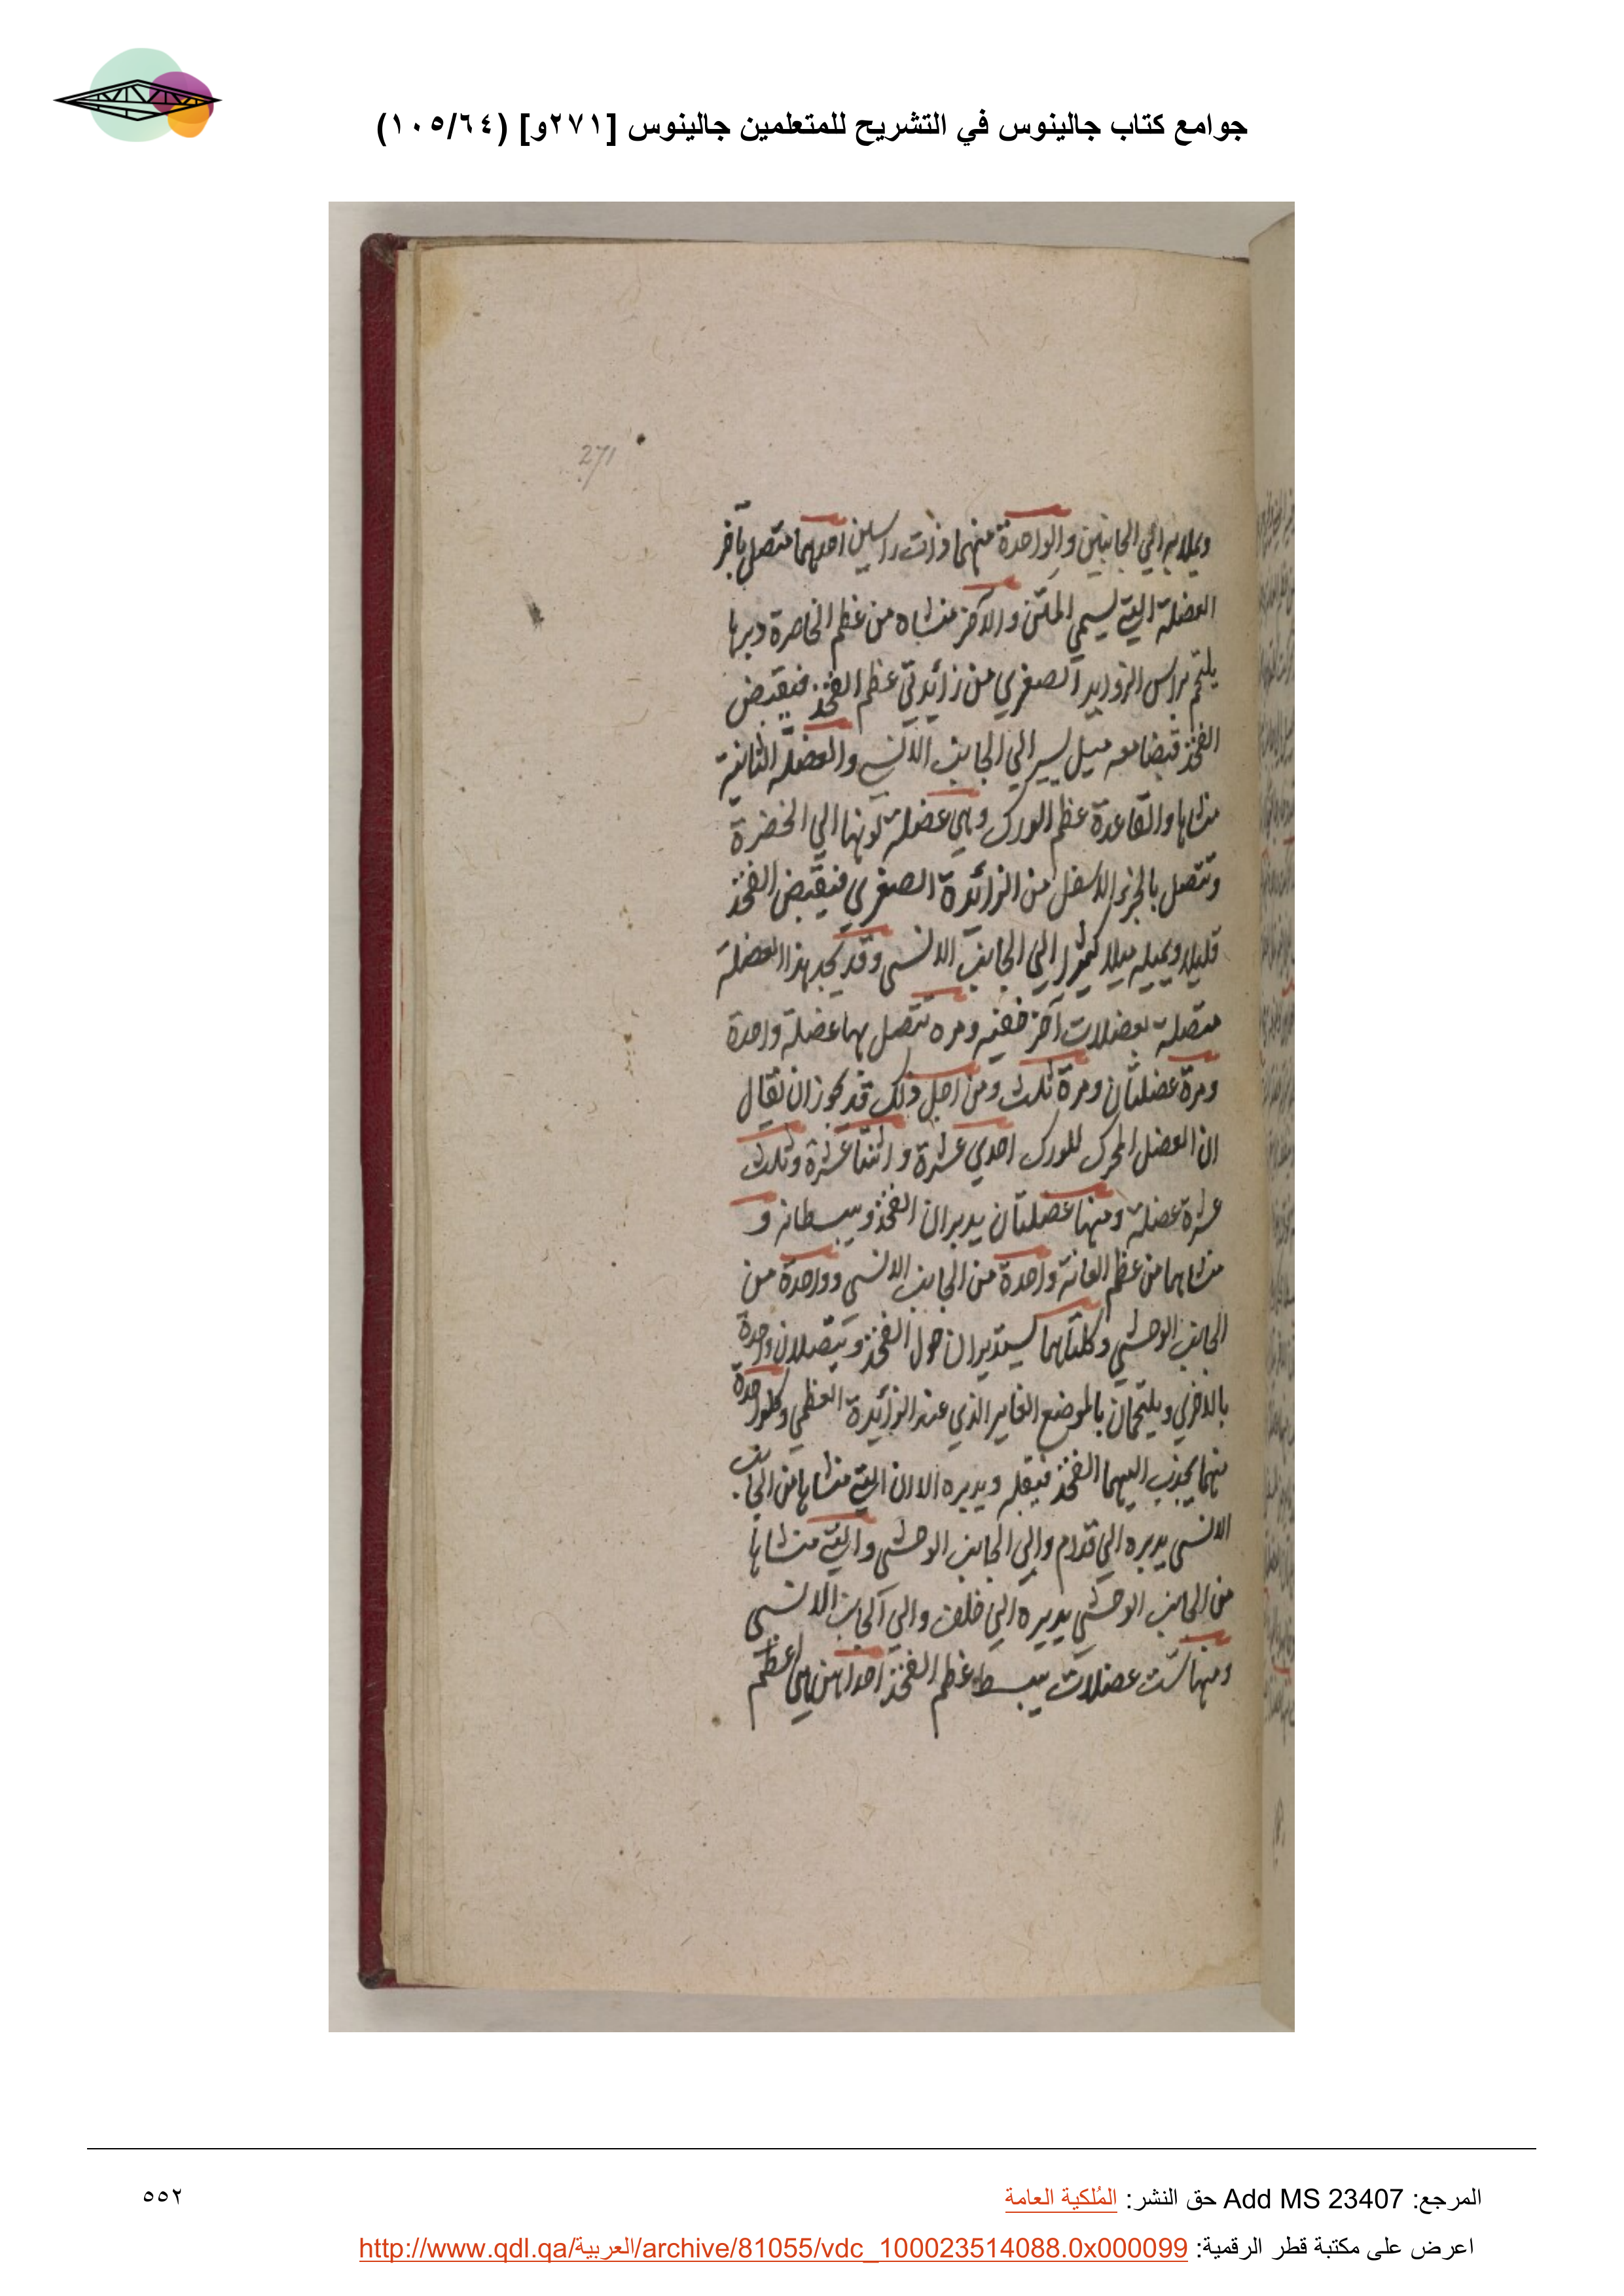 جوامع كتاب جالينوس في التشريح للمتعلمين جالينوس [٢٧١و] (١٠٥/٦٤)
271
ويميلانه الي الجانبين والواحدة منهما ذات راسين احدهما متصل بآخر
العضلة التي تسمي المتن والآخر منشاه من عظم الخاصرة وبرها
يلتحم براس الزوايد الصغري من زائدتي عظم الفخذ فيقبض
الفخذ قبضا معه ميل يسير الي الجانب الانسي والعضلة الثانية
منشاها والقاعدة عظم الورك وهي عضلة لونها الي الخضرة
وتتصل بالجزء الاسفل من الزائدة الصغري فيقبض الفخذ
قليلا ويميله ميلا كثيرا الي الجانب الانسي وقد يجد بهذا العضلة
متصلة بعضلات آخر خفية ومره تتصل بها عضلة واحدة
ومرة عضلتان ومرة ثلث ومن اجل ذلك قد يجوز ان يقال
ان العضل المحرك للورك احدي عشرة واثنتا عشرة وثلث
عشرة عضلة ومنها عضلتان يديران الفخذ ويبسطانه و
منشاهما من عظم العانة واحدة من الجانب الانسي وواحدة من
الجانب الوحشي وكلتاهما يستديران حول الفخذ ويتصلان واحدة
بالاخري ويلتحمان بالموضع الغاير الذي عند الزائدة العظمي وكلواحدة
منهما يجذب اليهما الفخذ فيقله ويديره الا ان التي منشاها من الجانب
الانسي يديره الي قدام والي الجانب الوحشي والتي منشاها
من الجانب الوحشي يديره الي خلف والي الجانب الانسي
ومنها ست عضلات يبسط عظم الفخذ احداهن هي اعظم
المرجع: Add MS 23407 حق النشر: المُلكية العامة
٥٥٢
اعرض على مكتبة قطر الرقمية: http://www.qdl.qa/العربية/archive/81055/vdc_100023514088.0x000099